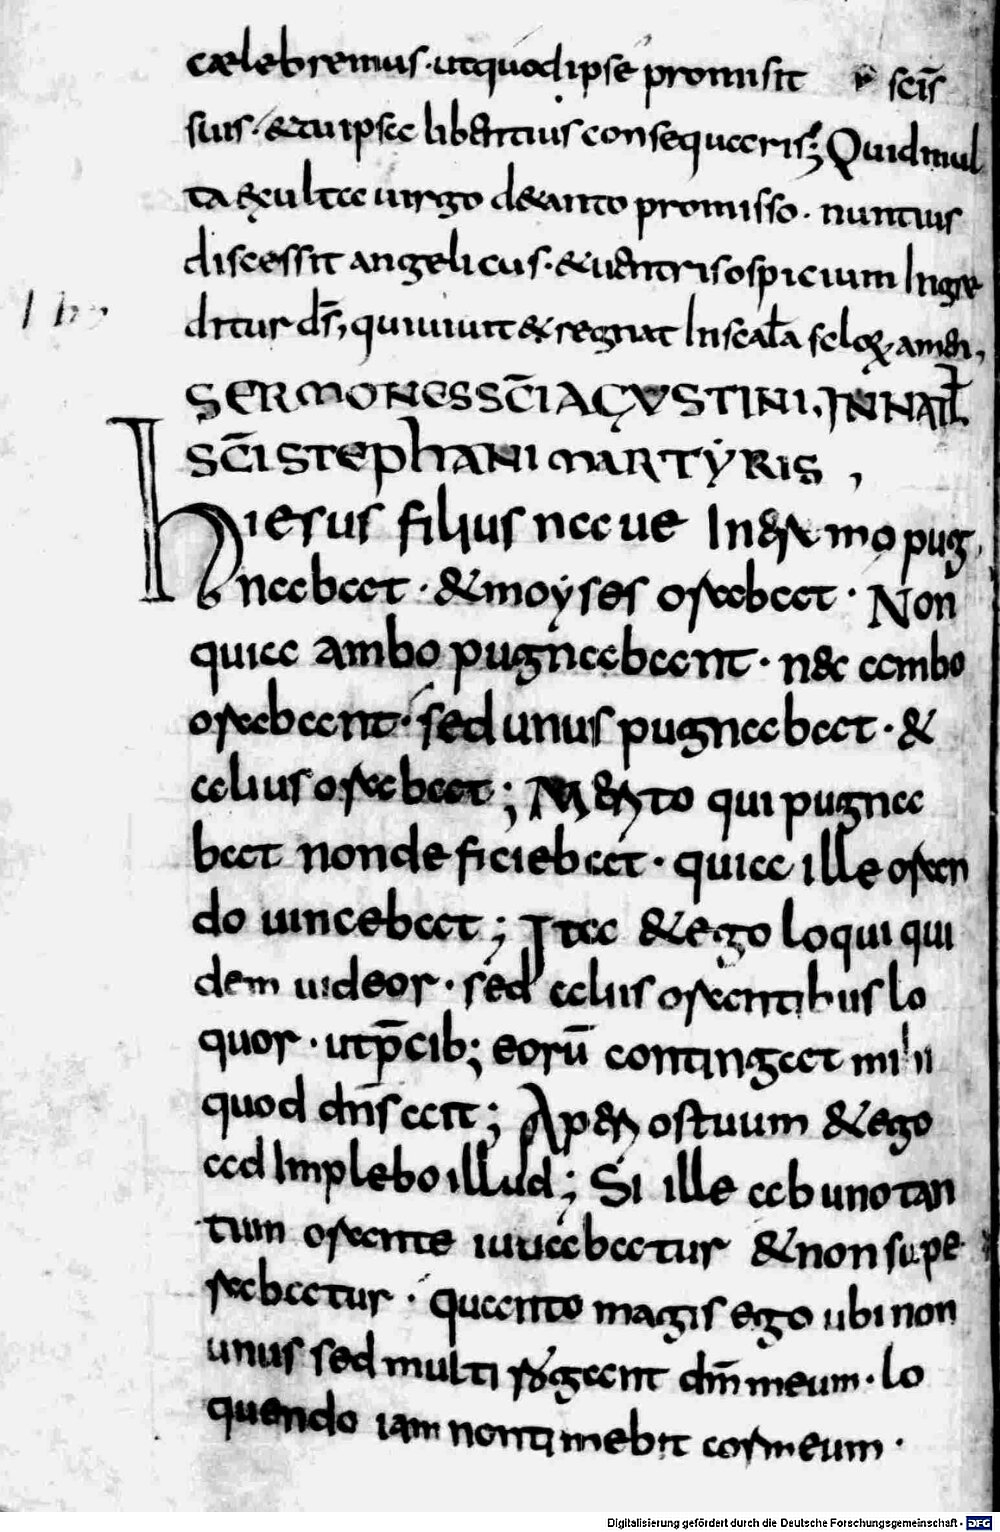 cælebremus· ut quod ipse promisit scīs
suis· & tu ipse libertius consequaeris; Quid mul
ta exulta uirgo de tanto promisso· nuntius
discessit angelicus· & uentris ospicium Ingre
ditur dr̄s, qui uiuit & regnat In secula selor, amen,
SERMONES SCĪ AGVSTINI, IN NAT̄L
SCĪ STEPHANI MARTYRIS,
Hiesus filius naue In heremo pug
nabat· & moyses orabat· Non
quia ambo pugnabant· nec ambo
orabant· sed unus pugnabat· &
alius orabat; Merito qui pugna
bat non deficiebat· quia ille oran
do uincebat; Ita & ego loqui qui
dem uideor· sed alius orantibus lo
quor· ut p̄cib; eorū contingat mihi
quod dn̄s ait; Aperi os tuum & ego
ad Implebo illud; Si ille ab uno tan
tum orante iuuabatur & non supe
rabatur· quanto magis ego ubi non
unus sed multi rogant dn̄m meum· lo
quendo iam non timebit cor meum·
Digitalisierung gefördert durch die Deutsche Forschungsgemeinschaft - DFG